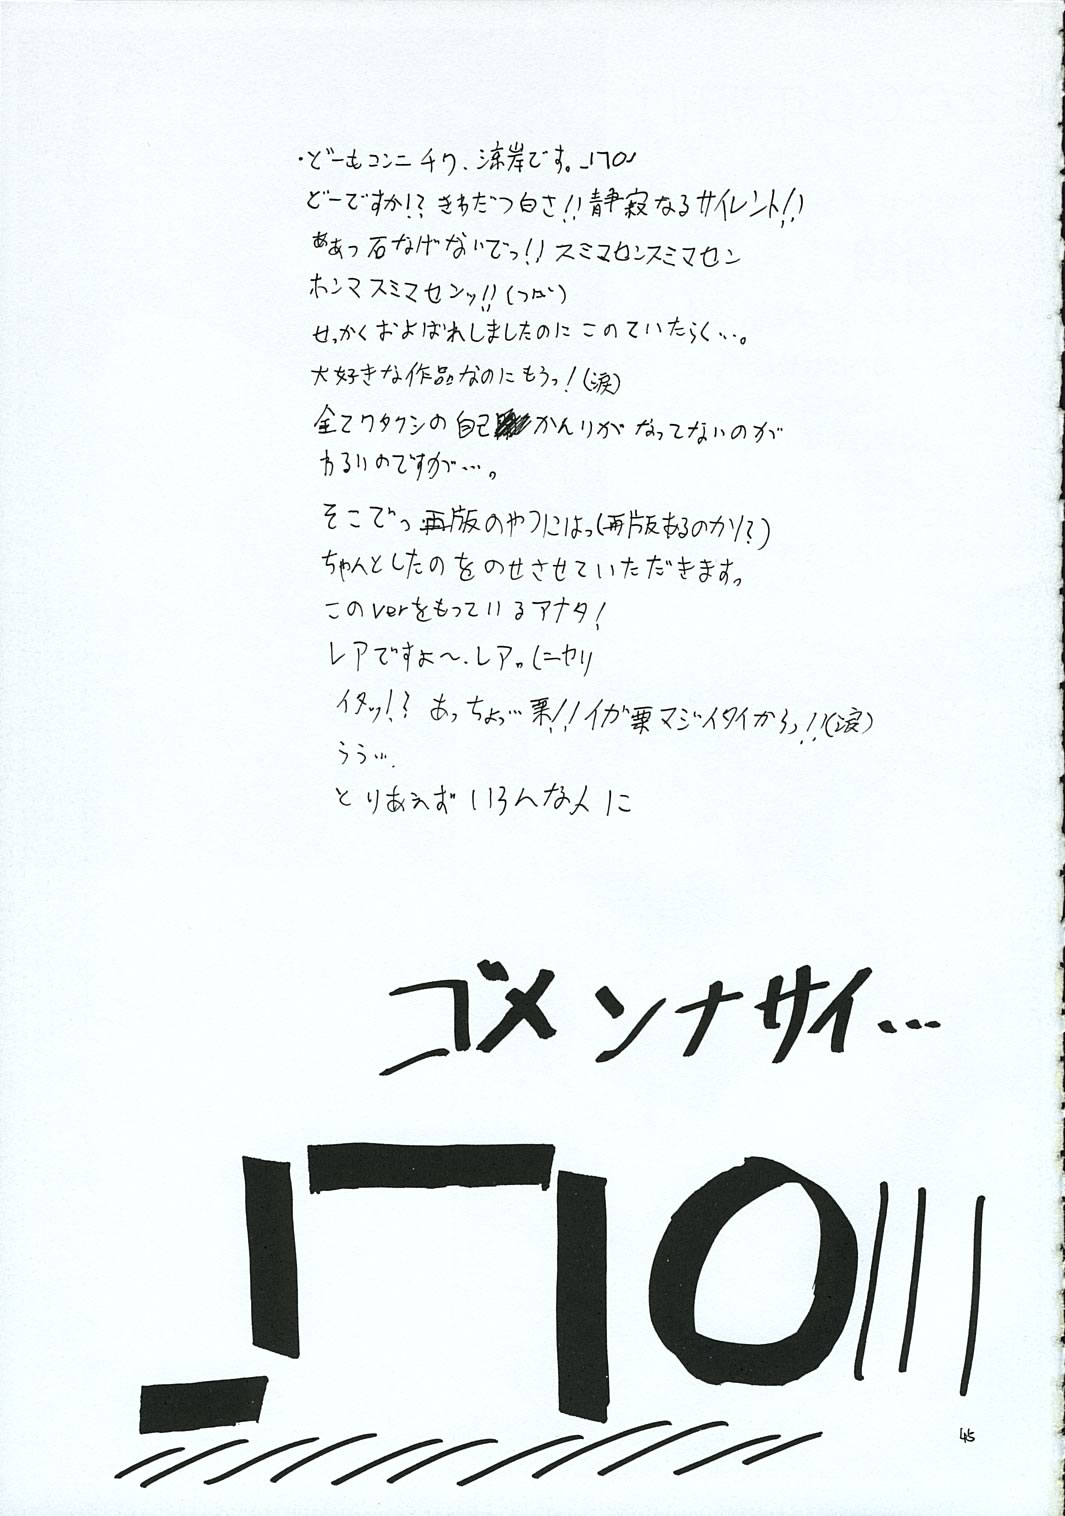 ・どーもコンニチワ、涼岸です。_| ̄|○
どーですか!?きわだつ白さ!!静寂なるサイレント!!
ああっ石なげないでっ!!スミマセンスミマセン
ホンマスミマセンッ!!(つдº)
せっかくおよばれしましたのにこのていたらく…。
大好きな作品なのにもうっ!(涙)
全てワタクシの自己かんりがなってないのが
わるいのですが…。
そこでっ再版のやつにはっ(再版あるのか!?)
ちゃんとしたのをのせさせていただきます。
このverをもっているアナタ!
レアですよ〜、レア。(ニヤリ
イタッ!?あっちょっ…栗!!イガ栗マジイタイからっ!!(涙)
うぅ…。
とりあえずいろんな人に
ゴメンナサイ…
_| ̄|○|||
45